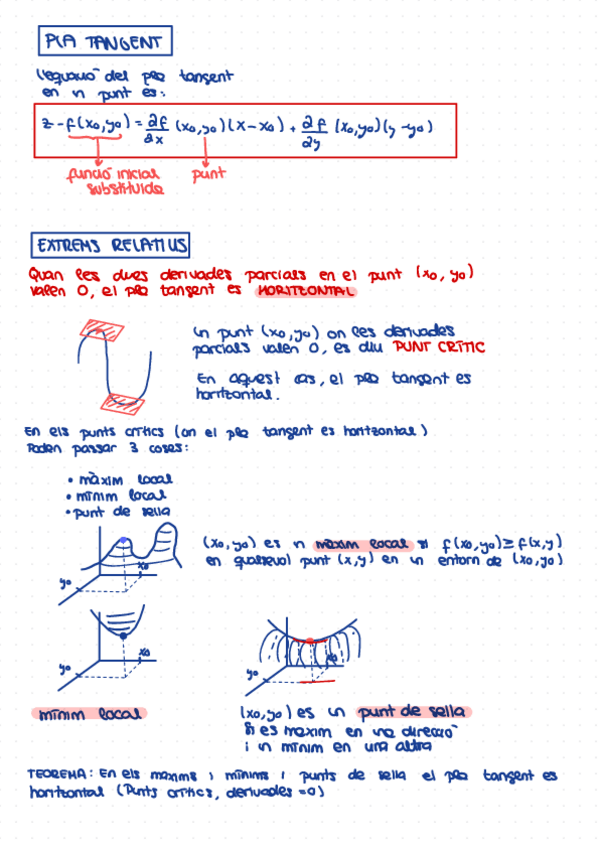 PLA TANGENT
L'equació del pla tangent
en un punt és:
z - f(x₀,y₀) = ∂f/∂x (x₀,y₀)(x-x₀) + ∂f/∂y (x₀,y₀)(y-y₀)
funció inicial substituïda
punt
EXTREMS RELATIUS
Quan les dues derivades parcials en el punt (x₀, y₀)
valen 0, el pla tangent es HORITZONTAL
un punt (x₀,y₀) on les derivades
parcials valen 0, es diu PUNT CRÍTIC
En aquest cas, el pla tangent es
horitzontal.
En els punts crítics (on el pla tangent es horitzontal)
Poden passar 3 coses:
• màxim local
• mínim local
• punt de sella
x₀
y₀
(x₀,y₀) es un màxim local si f(x₀,y₀) ≥ f(x,y)
en qualsevol punt (x,y) en un entorn de (x₀,y₀)
x₀
y₀
x₀
y₀
mínim local
(x₀,y₀) es un punt de sella
si es màxim en una direcció
i un mínim en una altra
TEOREMA: En els màxims i mínims i punts de sella el pla tangent es
horitzontal (Punts crítics, derivades = 0)